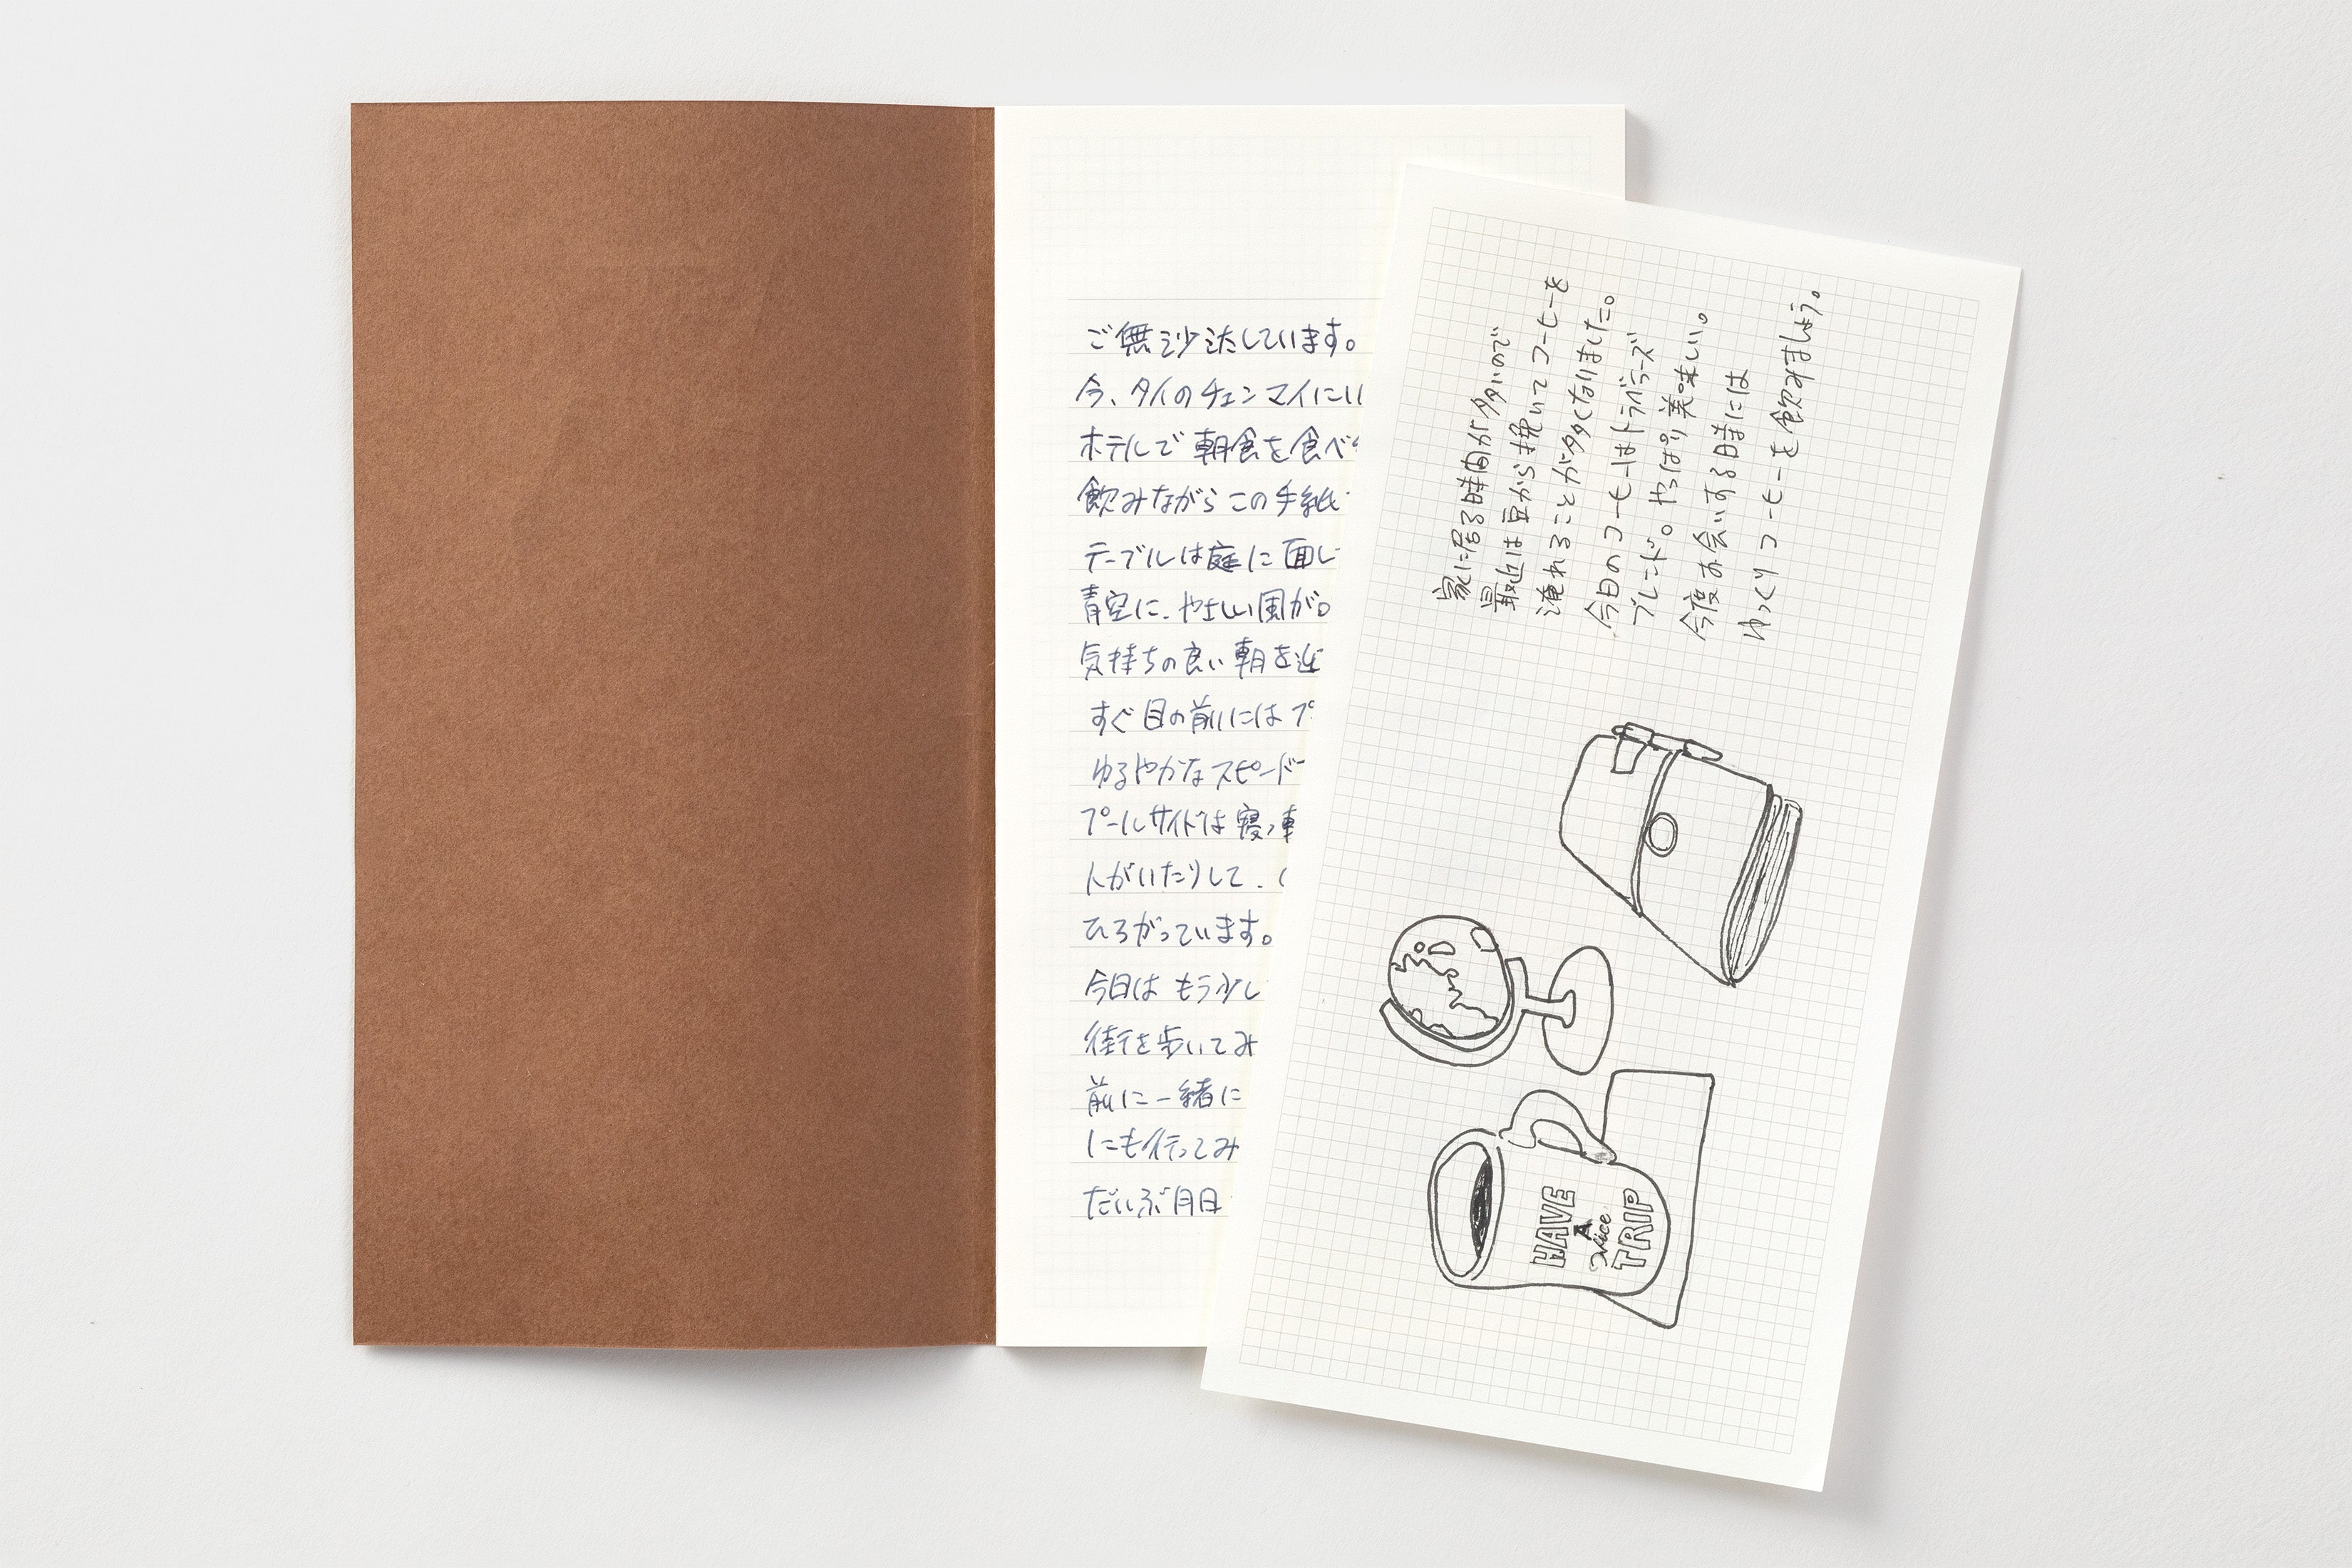 ご無沙汰しています。
今、タイのチェンマイにい
ホテルで朝食を食べ
飲みながらこの手紙
テーブルは庭に面し
青空に、やさしい風が。
気持ちの良い朝を迎
すぐ目の前にはプ
ゆるやかなスピード
プールサイドは寝
人がいたりして、
ひろがっています。
今日はもう少し
街を歩いてみ
前に一緒に
にも行ってみ
だいぶ月日
家に居る時間が多いので
最近は豆から挽いてコーヒーを
淹れることが多くなりました。
今日のコーヒーはトラベラーズ
ブレンド。やっぱり美味しい。
今度お会いする時には
ゆっくりコーヒーを飲みましょう。
HAVE
A
Nice
TRIP